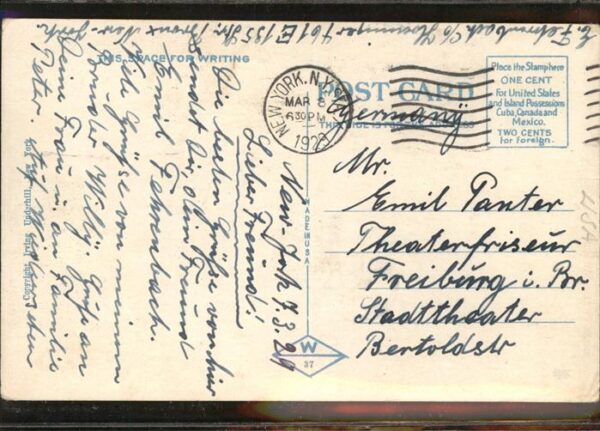 E. Fehrenbach C/o
461 E 135 Str. Bronx New-York
THIS SPACE FOR WRITING
POST CARD
Germany
Place the Stamp here
ONE CENT
for United States
and Island Possessions
Cuba, Canada and
Mexico.
TWO CENTS
for foreign.
NEW YORK, N.Y.
MAR 8
6 30 PM
New-York 7.3.29
Lieber Freund!
Die besten Grüße von hier
sendet dir dein Freund
Emil Fehrenbach.
Viele Grüße von meinem
Bruder Willy. Gruß an
Deine Frau u. an Familie
Peter.
Mr.
Emil Panter
Theaterfriseur
Freiburg i. Br.
Stadttheater
Bertoldstr
MADE IN USA
W
37
Copyright, Irving Underhill, New York
USA